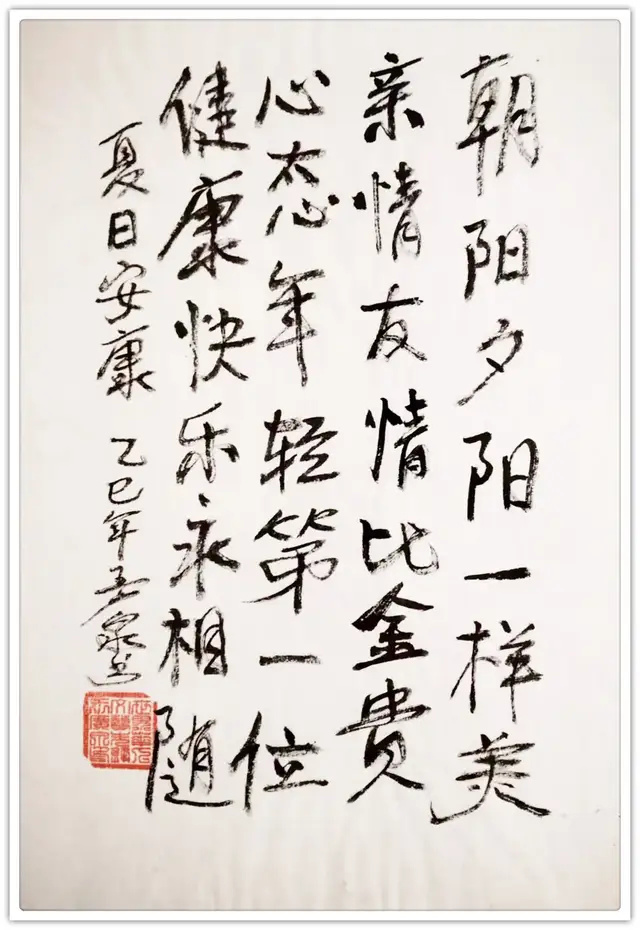 朝阳夕阳一样美
亲情友情比金贵
心态年轻第一位
健康快乐永相随
夏日安康 乙巳年